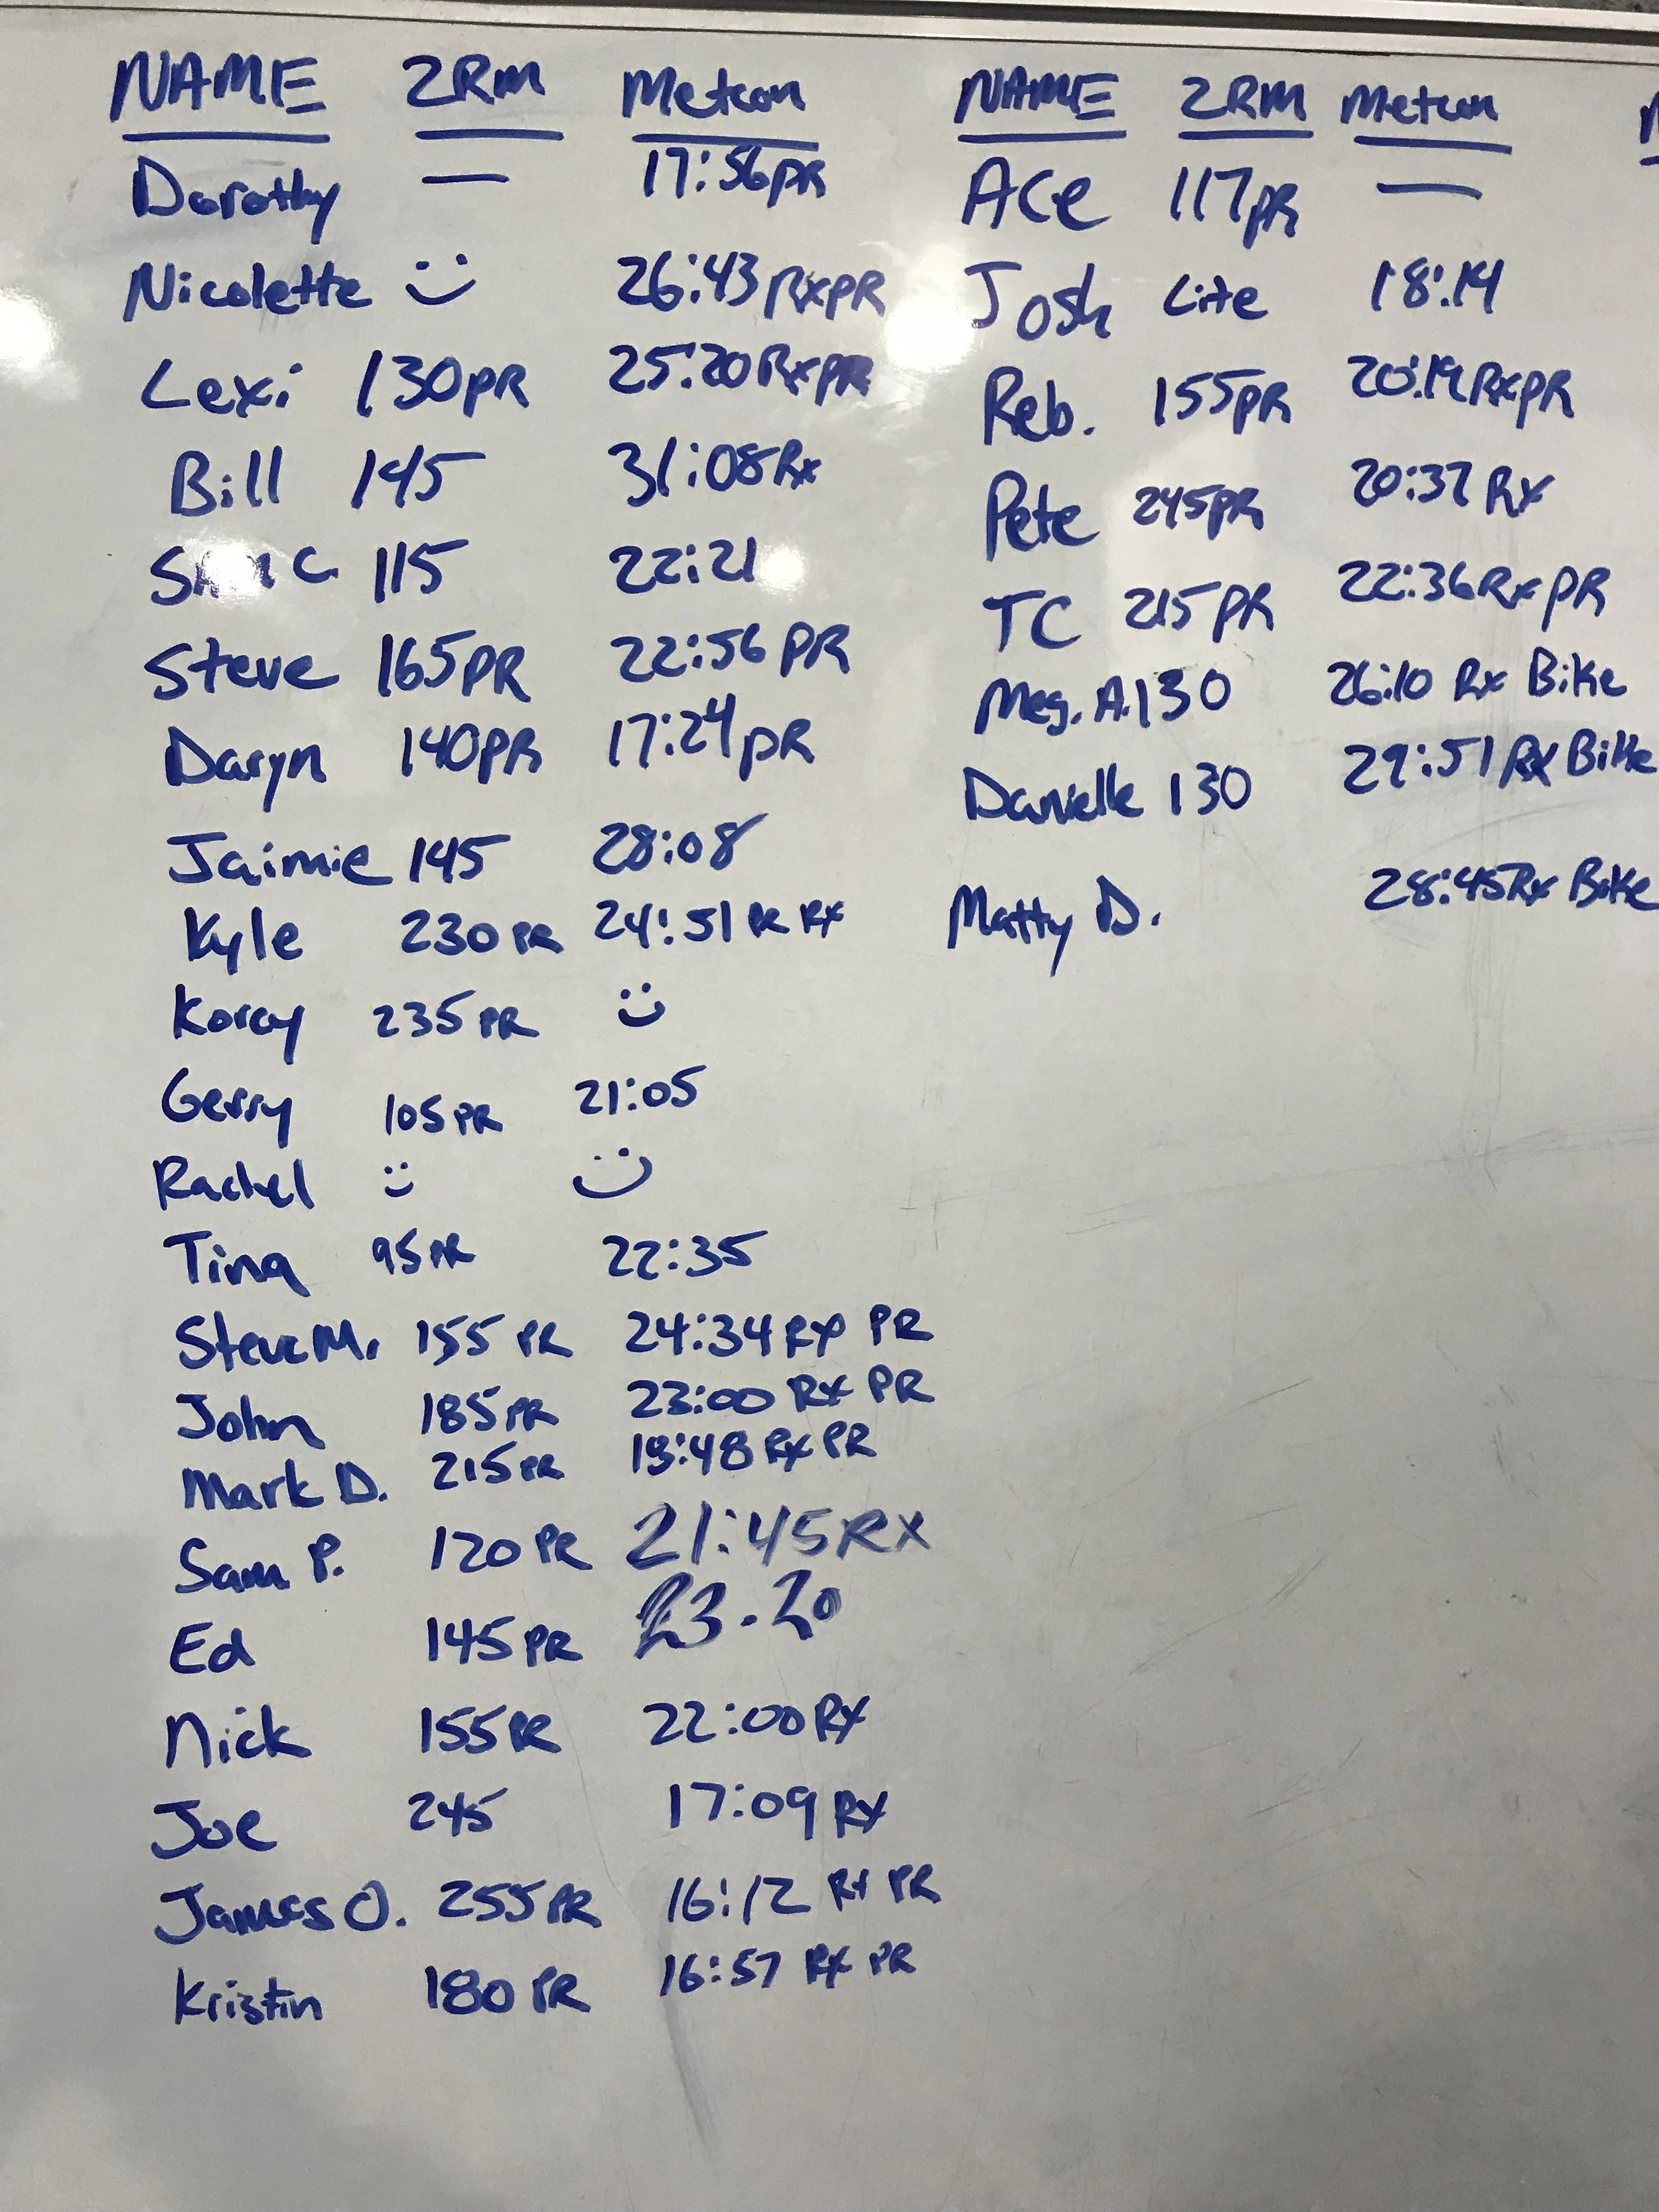 NAME 2RM Metcon
Dorothy — 17:56 PR
Nicolette :) 26:43 RxPR
Lexi 130PR 25:20 RxPR
Bill 145 31:08 Rx
115 22:21
Steve 165PR 22:56 PR
Daryn 140PR 17:24 PR
Jaimie 145 28:08
Kyle 230 PR 24:51 PR RX
Korey 235 PR :)
Gerry 105 PR 21:05
Rachel :) :)
Tina 95 PR 22:35
Steve M. 155 PR 24:34 RX PR
John 185 PR 23:00 RX PR
Mark D. 215 PR RX PR
Sam P. 120 PR 21:45 RX
Ed 145 PR 23.20
Nick 155 PR 22:00 RX
Joe 245 17:09 RX
James O. 255 PR 16:12 RX PR
Kristin 180 PR 16:57 RX PR
NAME 2RM Metcon
Ace 117PR —
Josh Lite 18:14
Reb. 155PR 20:19 RxPR
Pete 245PR 20:37 RX
TC 215 PR 22:36 Rx PR
Meg. A. 130 26:10 Rx Bike
Danielle 130 29:51 RX Bike
Matty D. 28:45 Rx Bike